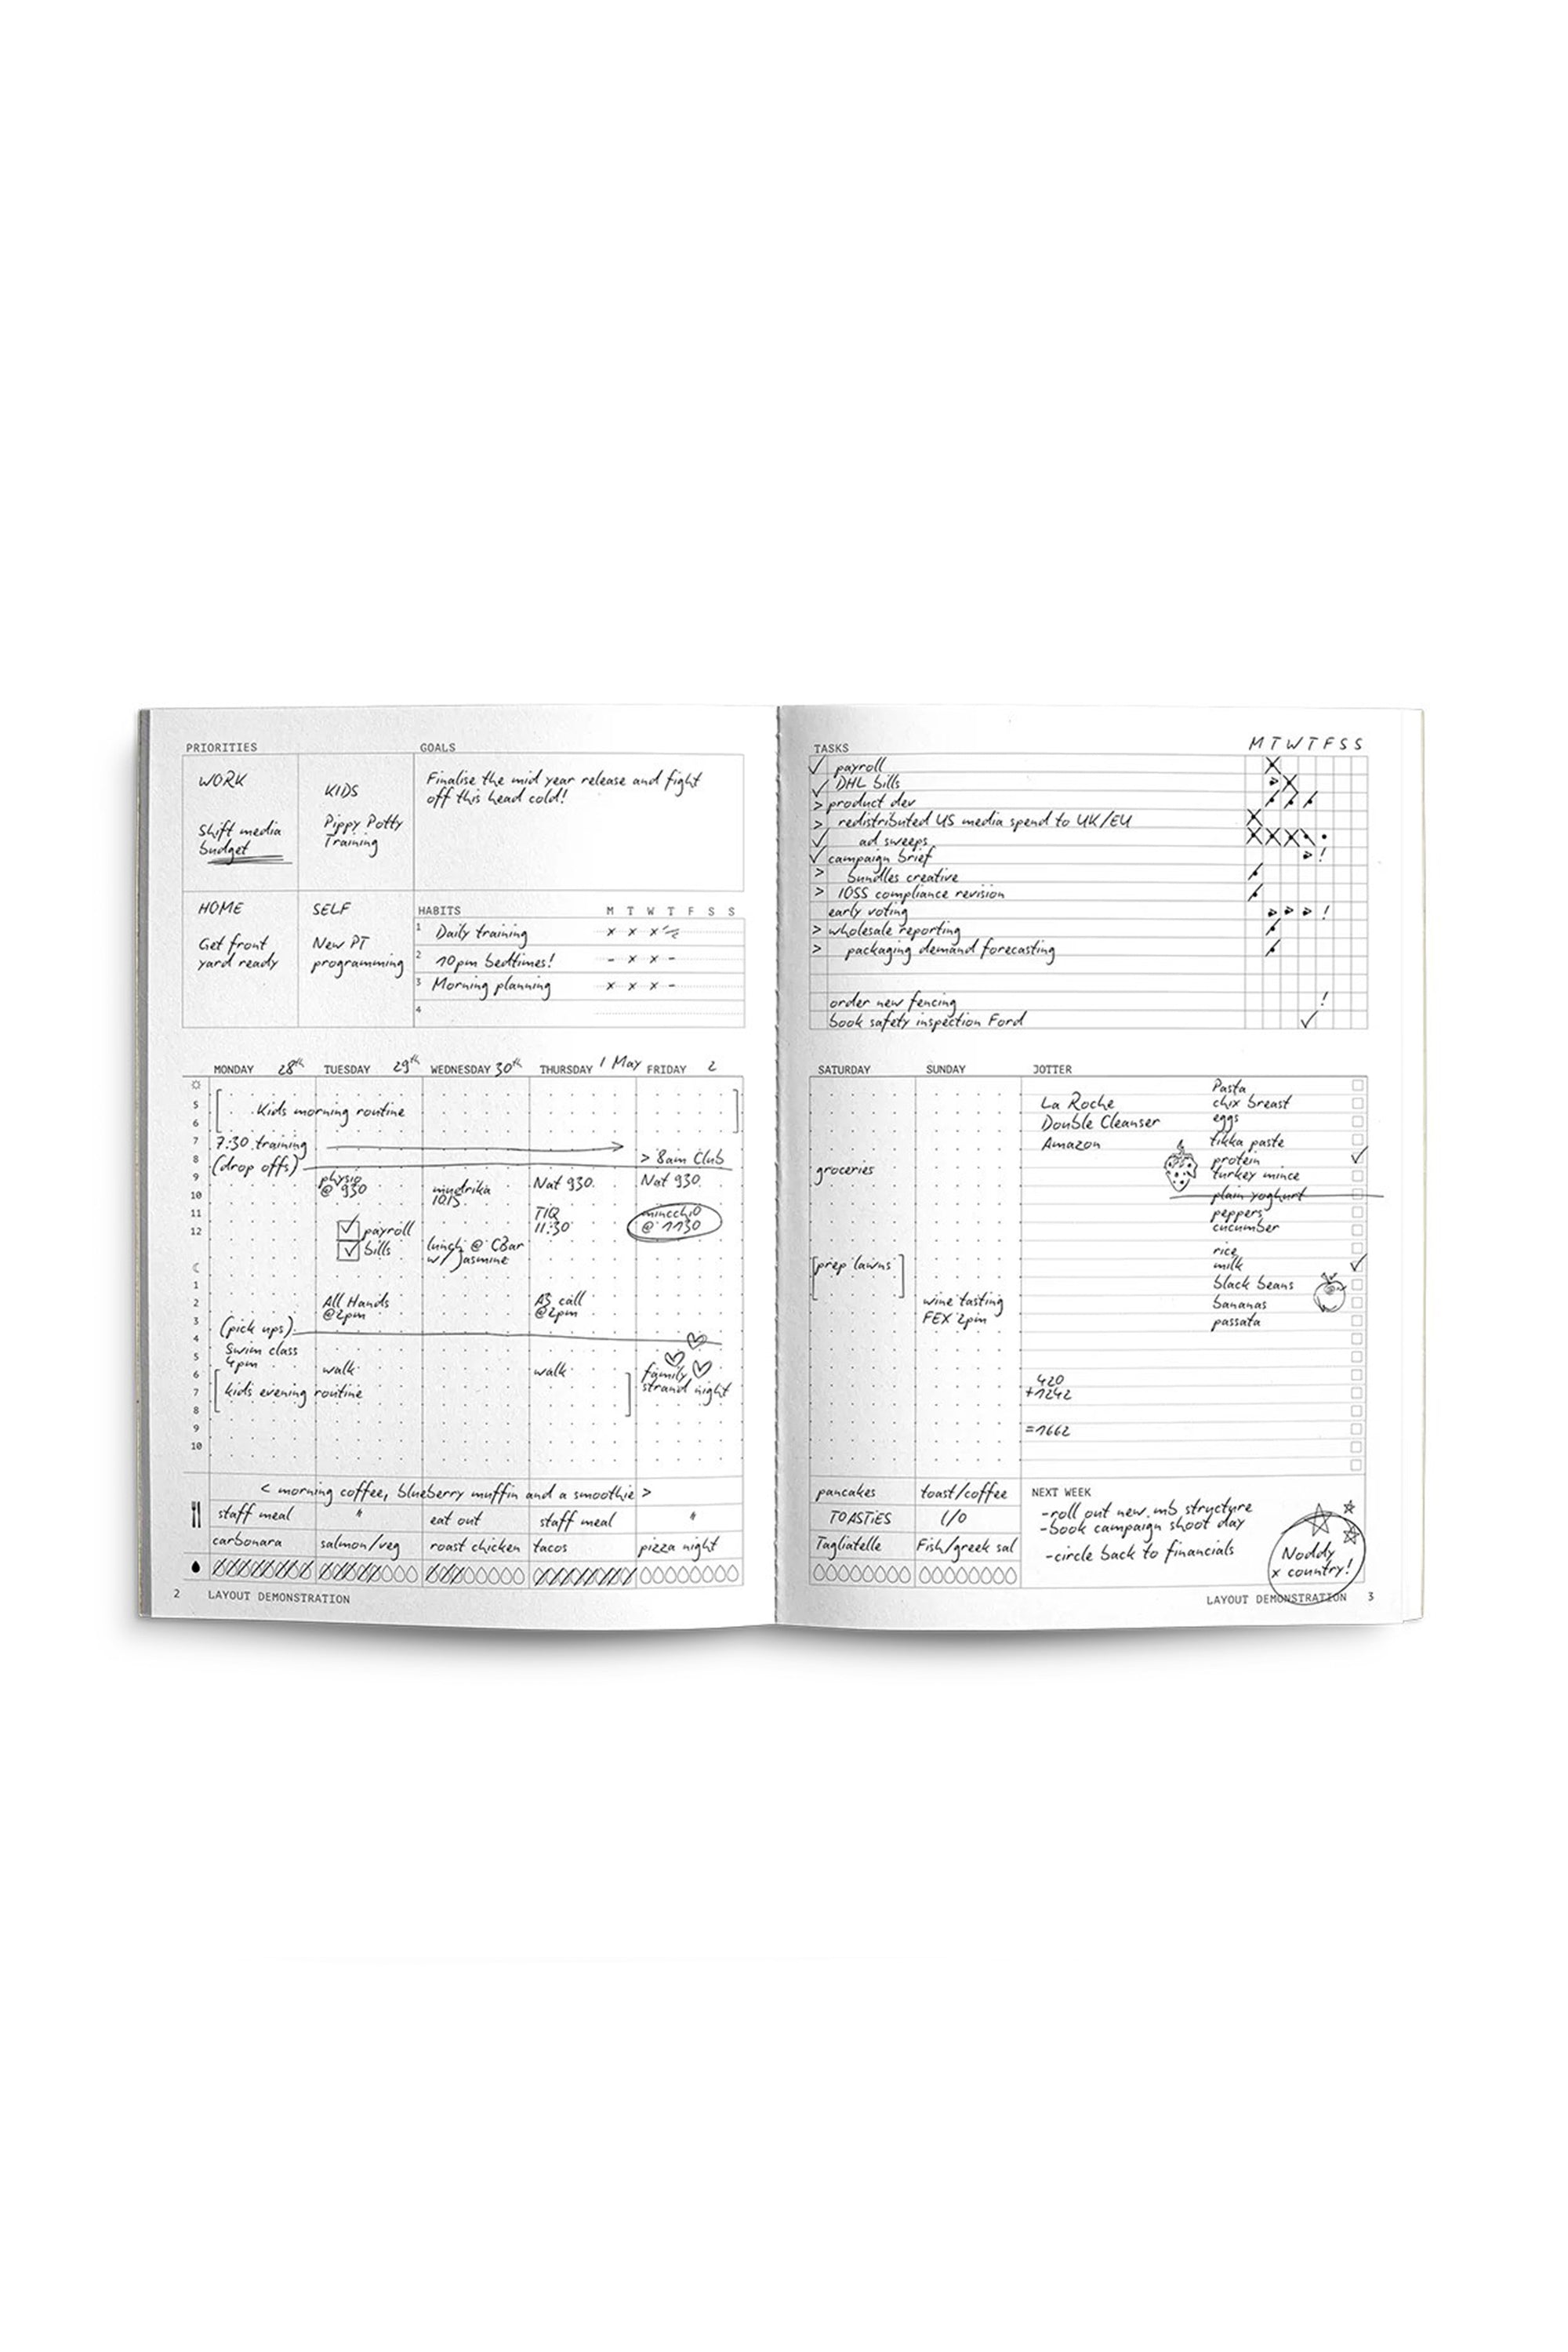 PRIORITIES
WORK
Shift media
budget
KIDS
Pippy Potty
Training
HOME
Get front
yard ready
SELF
New PT
programming
GOALS
Finalise the mid year release and fight
off this head cold!
HABITS M T W T F S S
1 Daily training x x x
2 10pm bedtimes! - x x -
3 Morning planning x x x -
4
MONDAY 28th TUESDAY 29th WEDNESDAY 30th THURSDAY 1 May FRIDAY 2
5
6
7
8
9
10
11
12
1
2
3
4
5
6
7
8
9
10
Kids morning routine
7:30 training
(drop offs)
> 8am Club
physio
@ 930
mudrika
1015
Nat 930
Nat 930
payroll
bills
TIQ
11:30
@ 1130
lunch @ CBar
w/ Jasmine
All Hands
@2pm
A3 call
@2pm
(pick ups)
Swim class
4pm
walk
walk
family
strand night
kids evening routine
< morning coffee, blueberry muffin and a smoothie >
staff meal " eat out staff meal "
carbonara salmon/veg roast chicken tacos pizza night
2 LAYOUT DEMONSTRATION
TASKS M T W T F S S
payroll
DHL bills
> product dev
> redistributed US media spend to UK/EU
ad sweeps
campaign brief !
> bundles creative
> IOSS compliance revision
early voting !
> wholesale reporting
> packaging demand forecasting
order new fencing !
book safety inspection Ford
SATURDAY SUNDAY JOTTER
groceries
[prep lawns]
wine tasting
FEX 2pm
La Roche
Double Cleanser
Amazon
Pasta
chix breast
eggs
tikka paste
protein
turkey mince
plain yoghurt
peppers
cucumber
rice
milk
black beans
bananas
passata
420
+1242
=1662
pancakes toast/coffee
TOASTIES L/O
Tagliatelle Fish/greek sal
NEXT WEEK
-roll out new mb structure
-book campaign shoot day
-circle back to financials
Noddy
x country!
LAYOUT DEMONSTRATION 3